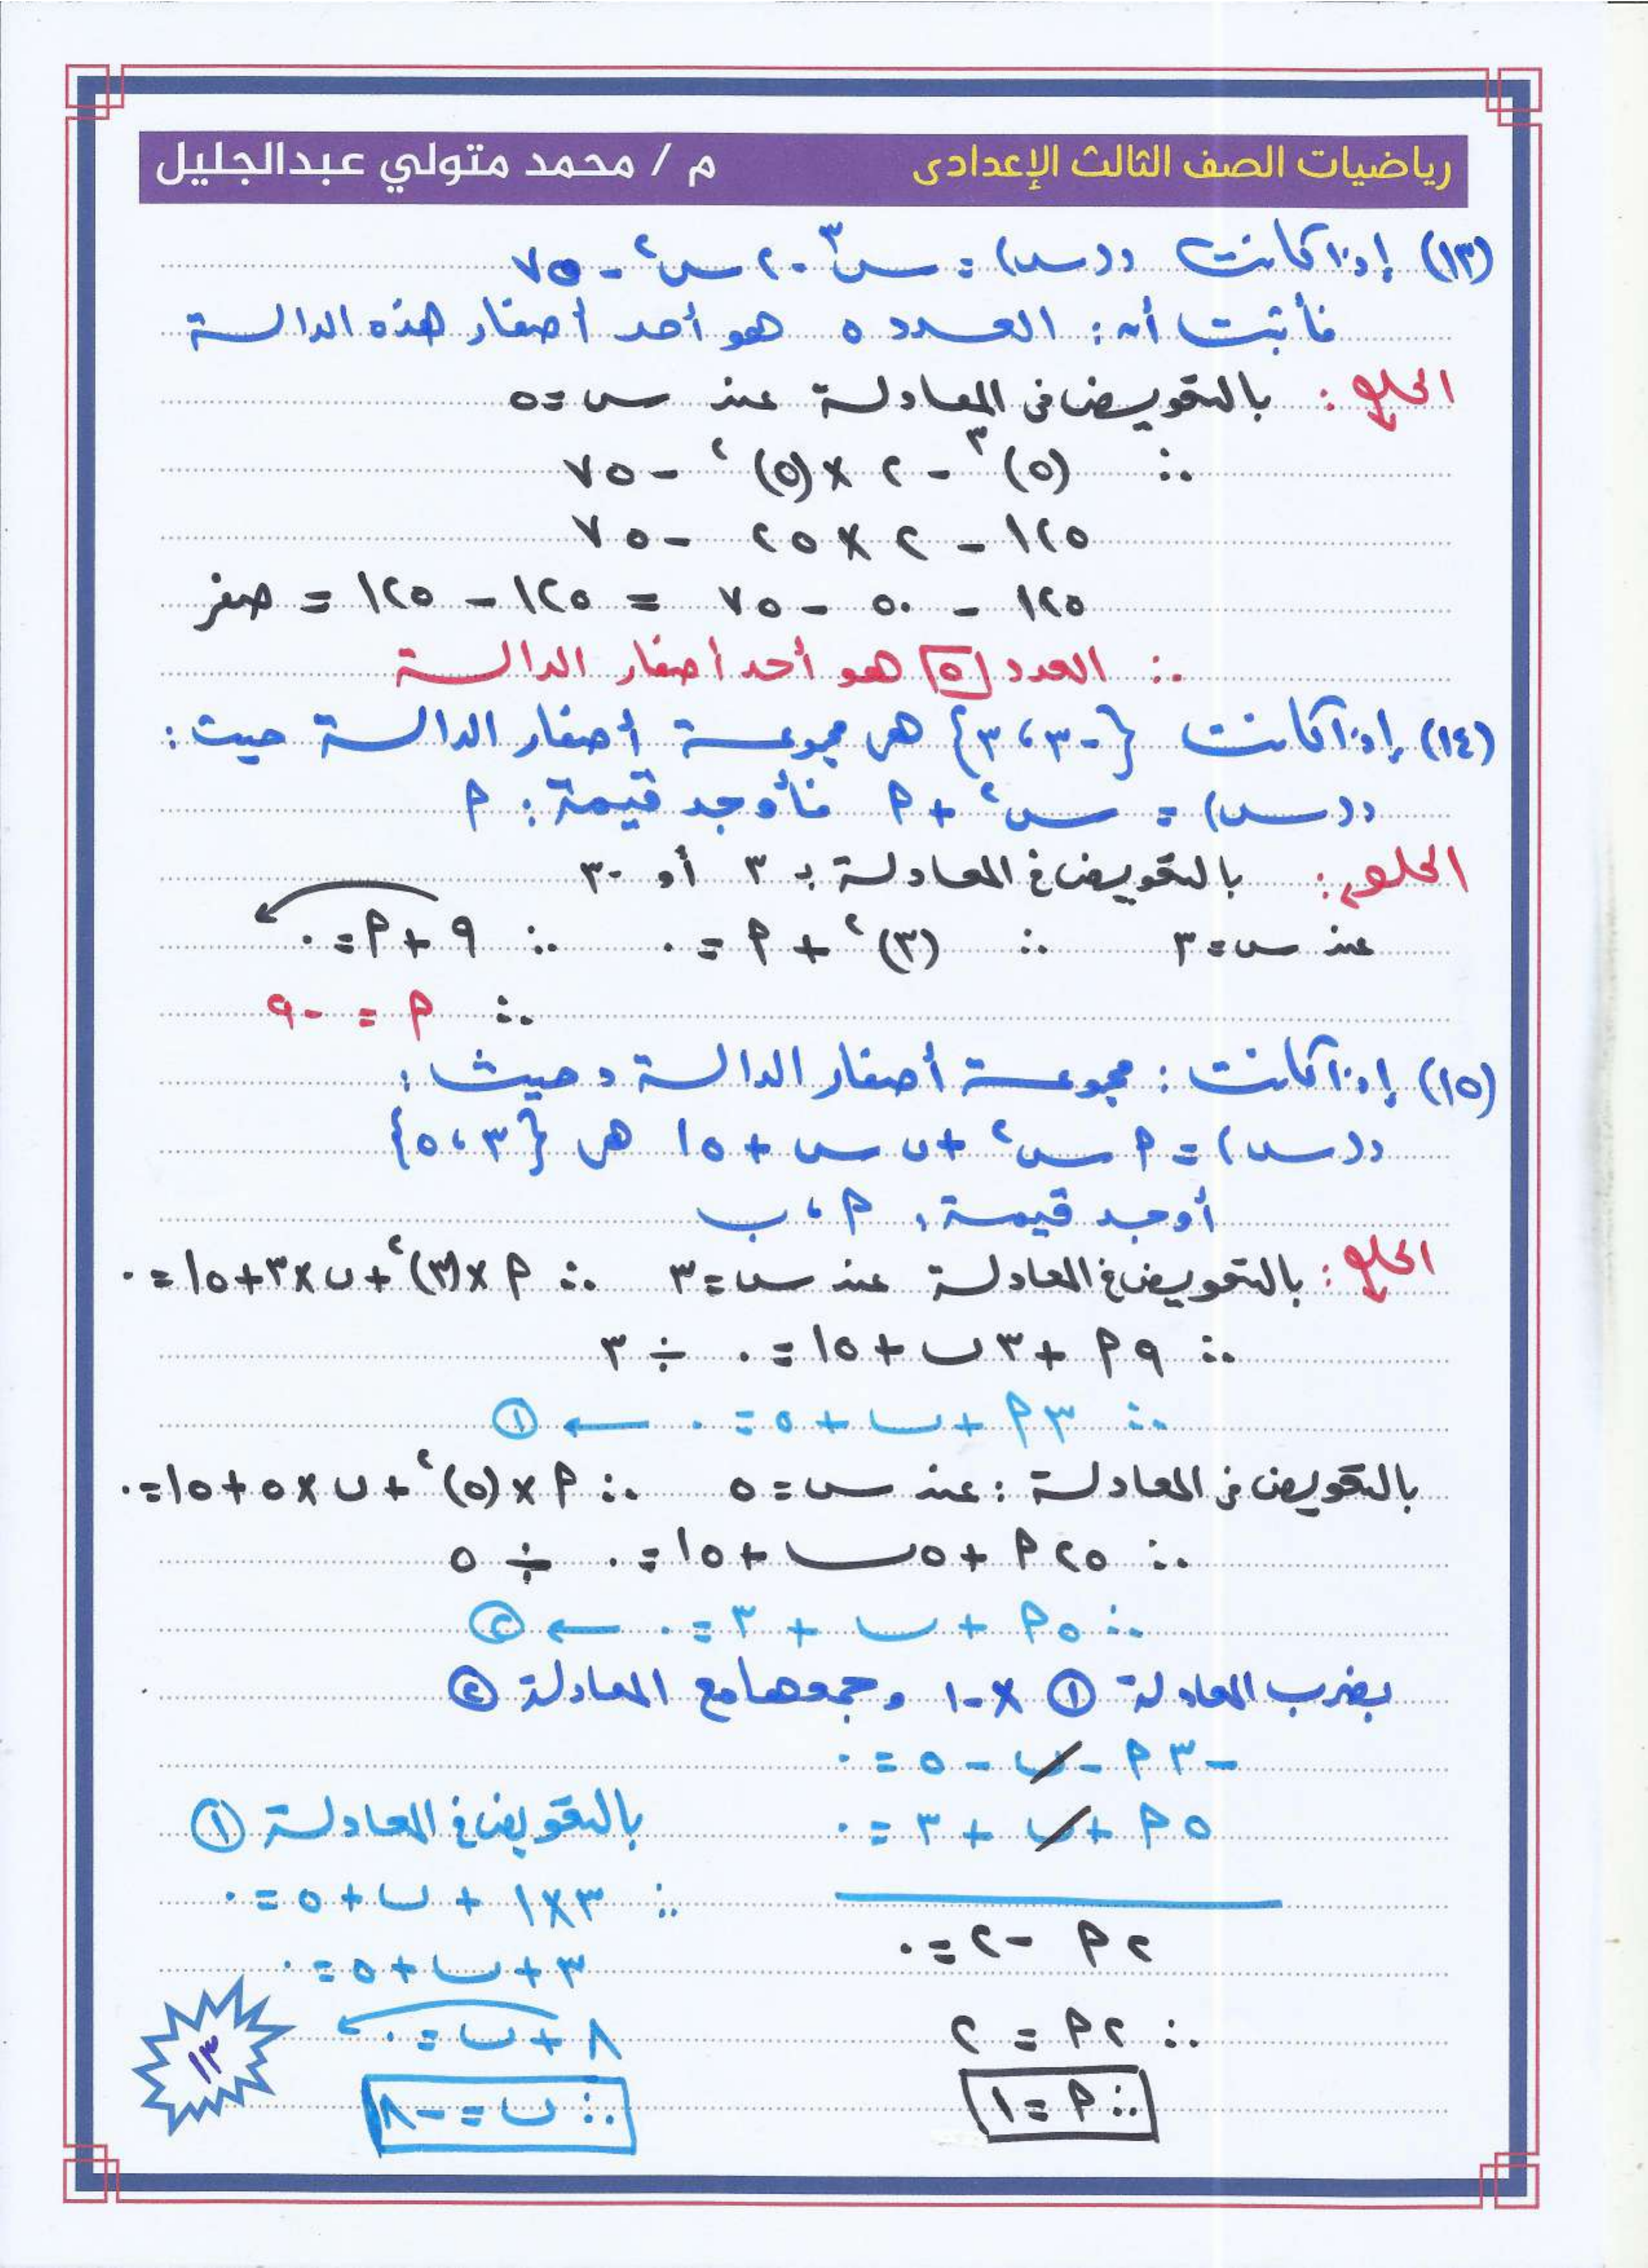 رياضيات الصف الثالث الإعدادى م / محمد متولي عبدالجليل
(١٣) إذا كانت د(س) = س³ - ٢س² - ٧٥
فأثبت أن: العدد ٥ هو أحد أصفار هذه الدالة
الحل: بالتعويض فى المعادلة عند س=٥
∴ (٥)³ - ٢ × (٥)² - ٧٥
١٢٥ - ٢ × ٢٥ - ٧٥
١٢٥ - ٥٠ - ٧٥ = ١٢٥ - ١٢٥ = صفر
∴ العدد ٥ هو أحد أصفار الدالة
(١٤) إذا كانت {-٣، ٣} هى مجموعة أصفار الدالة حيث:
د(س) = س² + م فأوجد قيمة: م
الحل: بالتعويض فى المعادلة بـ ٣ أو -٣
عند س=٣ ∴ (٣)² + م = ٠ ∴ ٩ + م = ٠
∴ م = -٩
(١٥) إذا كانت: مجموعة أصفار الدالة د حيث:
د(س) = م س² + ب س + ١٥ هى {٣، ٥}
أوجد قيمة: م، ب
الحل: بالتعويض فى المعادلة عند س=٣ ∴ م × (٣)² + ب × ٣ + ١٥ = ٠
∴ ٩م + ٣ب + ١٥ = ٠ ÷ ٣
∴ ٣م + ب + ٥ = ٠ ← ①
بالتعويض فى المعادلة: عند س=٥ ∴ م × (٥)² + ب × ٥ + ١٥ = ٠
∴ ٢٥م + ٥ب + ١٥ = ٠ ÷ ٥
∴ ٥م + ب + ٣ = ٠ ← ②
بضرب المعادلة ① × -١ وجمعها مع المعادلة ②
-٣م - ب - ٥ = ٠
٥م + ب + ٣ = ٠
٢م - ٢ = ٠
∴ ٢م = ٢
∴ م = ١
بالتعويض فى المعادلة ①
∴ ٣ × ١ + ب + ٥ = ٠
٣ + ب + ٥ = ٠
٨ + ب = ٠
∴ ب = -٨
١٣